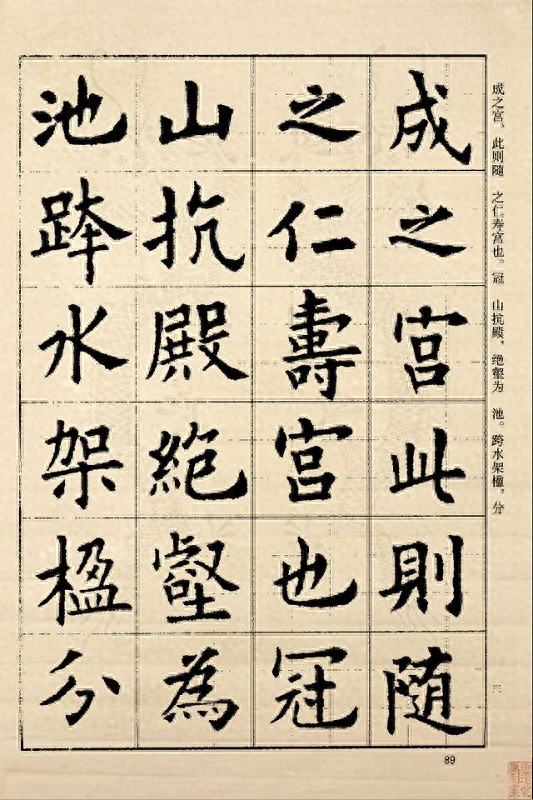 成之宫。此则随 之仁寿宫也。冠 山抗殿，绝壑为 池。跨水架楹，分
成之宮此則随
之仁壽宮也冠
山抗殿絕壑為
池跨水架楹分
89